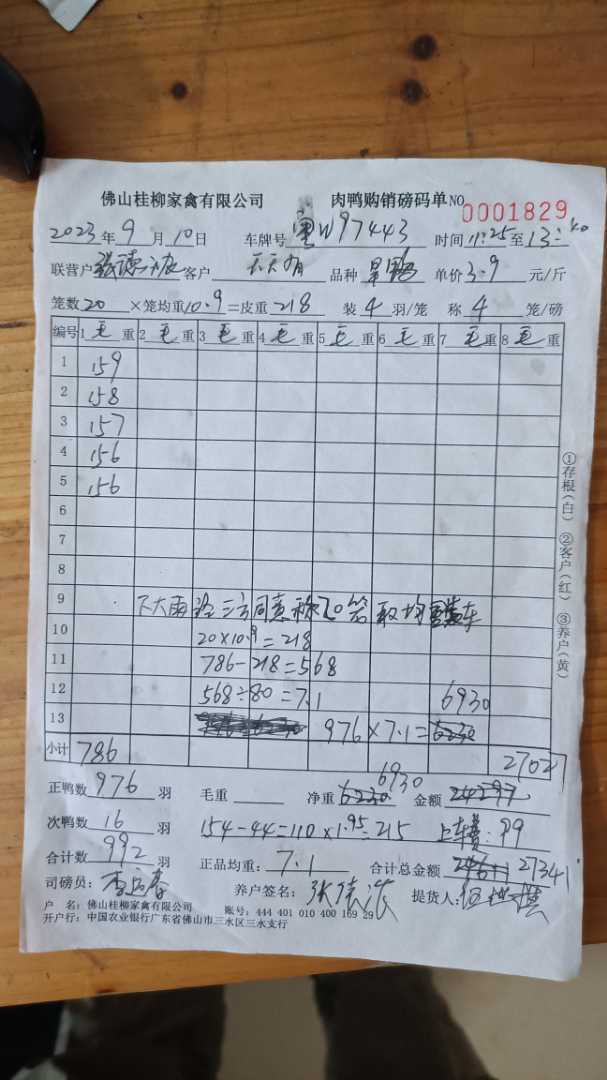 佛山桂柳家禽有限公司 肉鸭购销磅码单 NO 0001829
2023年9月10日 车牌号 粤W97443 时间 11:25 至 13:40
联营户 客户 天天有 品种 单价 3.9 元/斤
笼数 20 ×笼均重 10.9 =皮重 218 装 4 羽/笼 称 4 笼/磅
编号 1 毛 重 2 毛 重 3 毛 重 4 毛 重 5 毛 重 6 毛 重 7 毛 重 8 毛 重
1 159
2 158
3 157
4 156
5 156
6
7
8
9 下大雨 三方同意称20笼 取均重装车
10 20×10.9=218
11 786-218=568
12 568÷80=7.1 6930
13 976×7.1=6230
小计 786 27027
正鸭数 976 羽 毛重 净重 6230 6930 金额
次鸭数 16 羽 154-44=110×1.95=215 上车费:99
合计数 992 羽 正品均重: 7.1 合计总金额 27341
司磅员: 养户签名: 提货人:
户 名: 佛山桂柳家禽有限公司 账号: 444 401 010 400 169 29
开户行: 中国农业银行广东省佛山市三水区三水支行
①存根(白) ②客户(红) ③养户(黄)